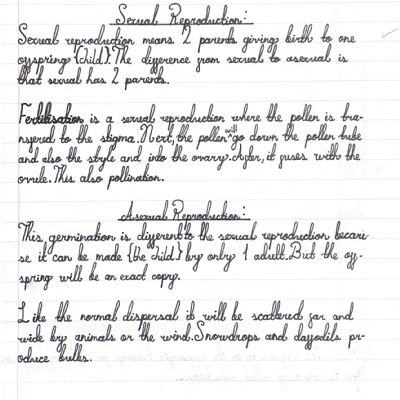 Sexual Reproduction:
Sexual reproduction means 2 parents giving birth to one
offspring (child). The difference from sexual to asexual is
that sexual has 2 parents.
Fertilisation is a sexual reproduction where the pollen is tra-
nsfered to the stigma. Next, the pollen will go down the pollen tube
and also the style and into the ovary. After, it fuses with the
ovule. This also pollination.
Asexual Reproduction:
This germination is different to the sexual reproduction becau-
se it can be made (the child) by only 1 adult. But the off-
spring will be an exact copy.
Like the normal dispersal it will be scattered far and
wide by animals or the wind. Snowdrops and daffodils pr-
oduce bulbs.